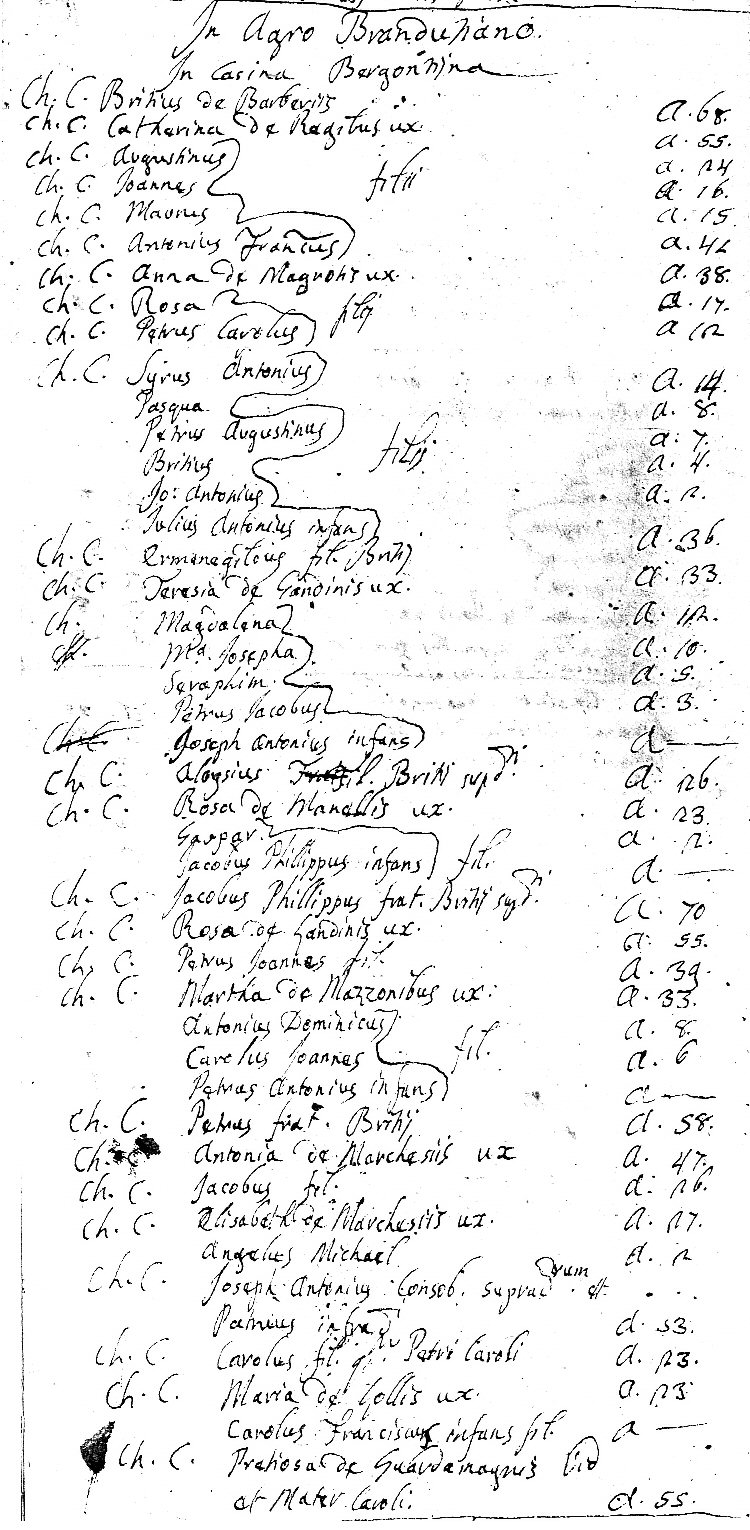 In Agro Brandutiano.
In Casina Bergontina
Ch. C. Britius de Barberiis a. 68.
Ch. C. Catherina de Regibus ux. a. 55.
Ch. C. Augustinus a. 24
Ch. C. Joannes filii a. 16.
Ch. C. Maurus a. 15
Ch. C. Antonius Francus a. 42
Ch. C. Anna de Magrotis ux. a. 38.
Ch. C. Rosa a. 17.
Ch. C. Petrus Carolus filij a 12
Ch. C. Syrus Antonius a. 14.
Pasqua a. 8.
Petrus Augustinus a. 7.
Britius filij a. 4.
Jo: Antonius a. 2.
Julius Antonius infans
Ch. C. Ermenegildus fil. Britij a. 36.
Ch. C. Teresia de Gandinis ux. a. 33.
Ch. Magdalena a. 12.
Ma. Josepha a. 10.
Seraphim. a. 5.
Petrus Jacobus a. 3.
Joseph Antonius infans a —
Ch. C. Aloysius fil. Britij supdi. a. 26.
Ch. C. Rosa de Manellis ux. a. 23.
Gaspar. a. 2.
Jacobus Phillippus infans fil. a. —
Ch. C. Jacobus Phillippus frat. Britij supdi. a. 70
Ch. C. Rosa de Gandinis ux. a. 55.
Ch. C. Petrus Joannes fil. a. 39.
Ch. C. Martha de Mazzonibus ux: a. 33.
Antonius Dominicus a. 8.
Carolus Joannes fil. a. 6
Petrus Antonius infans a —
Ch. C. Petrus frat. Britij a. 58.
Ch. C. Antonia de Marchesiis ux a. 47.
Ch. C. Jacobus fil. a. 26.
Ch. C. Elisabeth de Marchesiis ux. a. 27.
Angelus Michael a. 2
Ch. C. Joseph Antonius Consob. supradrum. et
Patruus infrad a. 53.
Ch. C. Carolus fil. qm Petri Caroli a. 23.
Ch. C. Maria de Gollis ux. a. 23
Carolus Franciscus infans fil. a —
Ch. C. Pretiosa de Guardamagnis Vid
et Mater Caroli. a. 55.